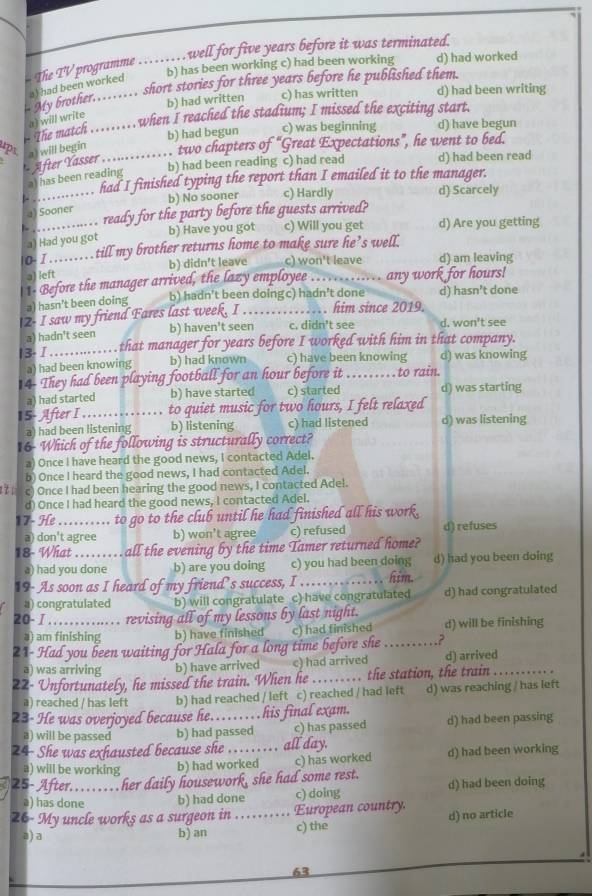 - The TV programme ......... well for five years before it was terminated.
a) had been worked b) has been working c) had been working d) had worked
- My brother......... short stories for three years before he published them.
a) will write b) had written c) has written d) had been writing
- The match ......... when I reached the stadium; I missed the exciting start.
a) will begin b) had begun c) was beginning d) have begun
- After Yasser ............. two chapters of "Great Expectations", he went to bed.
a) has been reading b) had been reading c) had read d) had been read
............. had I finished typing the report than I emailed it to the manager.
a) Sooner b) No sooner c) Hardly d) Scarcely
............. ready for the party before the guests arrived?
a) Had you got b) Have you got c) Will you get d) Are you getting
10- I ......... till my brother returns home to make sure he's well.
a) left b) didn't leave c) won't leave d) am leaving
11- Before the manager arrived, the lazy employee ............. any work for hours!
a) hasn't been doing b) hadn't been doing c) hadn't done d) hasn't done
12- I saw my friend Fares last week. I ............... him since 2019.
a) hadn't seen b) haven't seen c. didn't see d. won't see
13- I ............. that manager for years before I worked with him in that company.
a) had been knowing b) had known c) have been knowing d) was knowing
14- They had been playing football for an hour before it ......... to rain.
a) had started b) have started c) started d) was starting
15- After I ............... to quiet music for two hours, I felt relaxed
a) had been listening b) listening c) had listened d) was listening
16- Which of the following is structurally correct?
a) Once I have heard the good news, I contacted Adel.
b) Once I heard the good news, I had contacted Adel.
c) Once I had been hearing the good news, I contacted Adel.
d) Once I had heard the good news, I contacted Adel.
17- He .......... to go to the club until he had finished all his work.
a) don't agree b) won't agree c) refused d) refuses
18- What ......... all the evening by the time Tamer returned home?
a) had you done b) are you doing c) you had been doing d) had you been doing
19- As soon as I heard of my friend's success, I ............... him.
a) congratulated b) will congratulate c) have congratulated d) had congratulated
20- I ............. revising all of my lessons by last night.
a) am finishing b) have finished c) had finished d) will be finishing
21- Had you been waiting for Hala for a long time before she ..........?
a) was arriving b) have arrived c) had arrived d) arrived
22- Unfortunately, he missed the train. When he ......... the station, the train ...........
a) reached / has left b) had reached / left c) reached / had left d) was reaching / has left
23- He was overjoyed because he......... his final exam.
a) will be passed b) had passed c) has passed d) had been passing
24- She was exhausted because she ......... all day.
a) will be working b) had worked c) has worked d) had been working
25- After......... her daily housework, she had some rest.
a) has done b) had done c) doing d) had been doing
26- My uncle works as a surgeon in .......... European country.
a) a b) an c) the d) no article
63